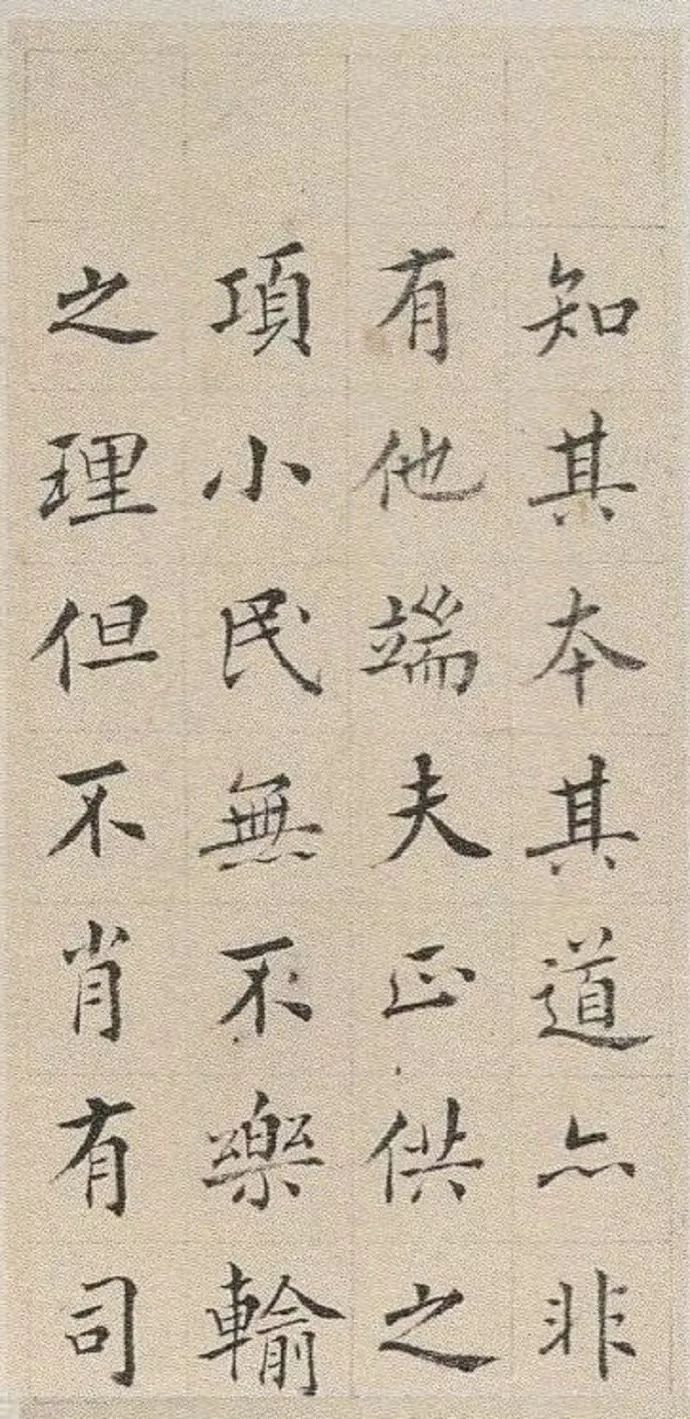 知其本其道亦非
有他端夫正供之
項小民無不樂輸
之理但不肖有司